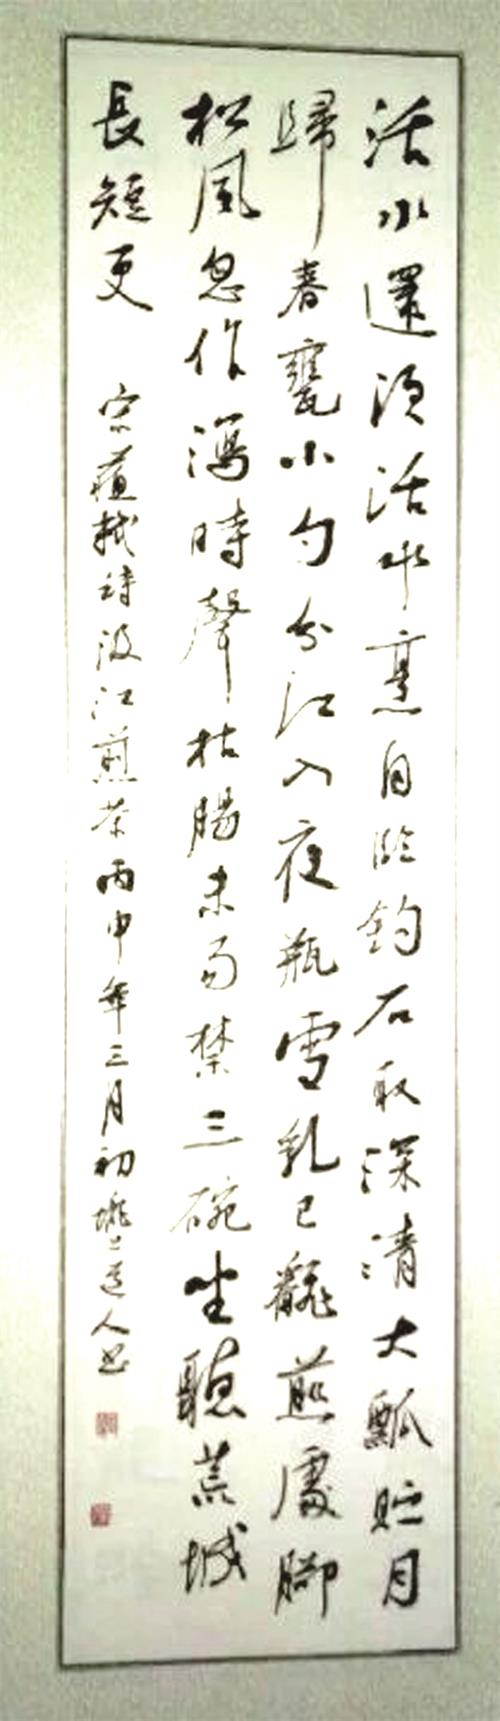 活水還須活水烹自臨釣石取深清大瓢貯月
歸春甕小勺分江入夜瓶雪乳已飜煎處腳
松風忽作瀉時聲枯腸未易禁三碗坐聽荒城
長短更 宋蘇軾詩汲江煎茶丙申年三月初道人書